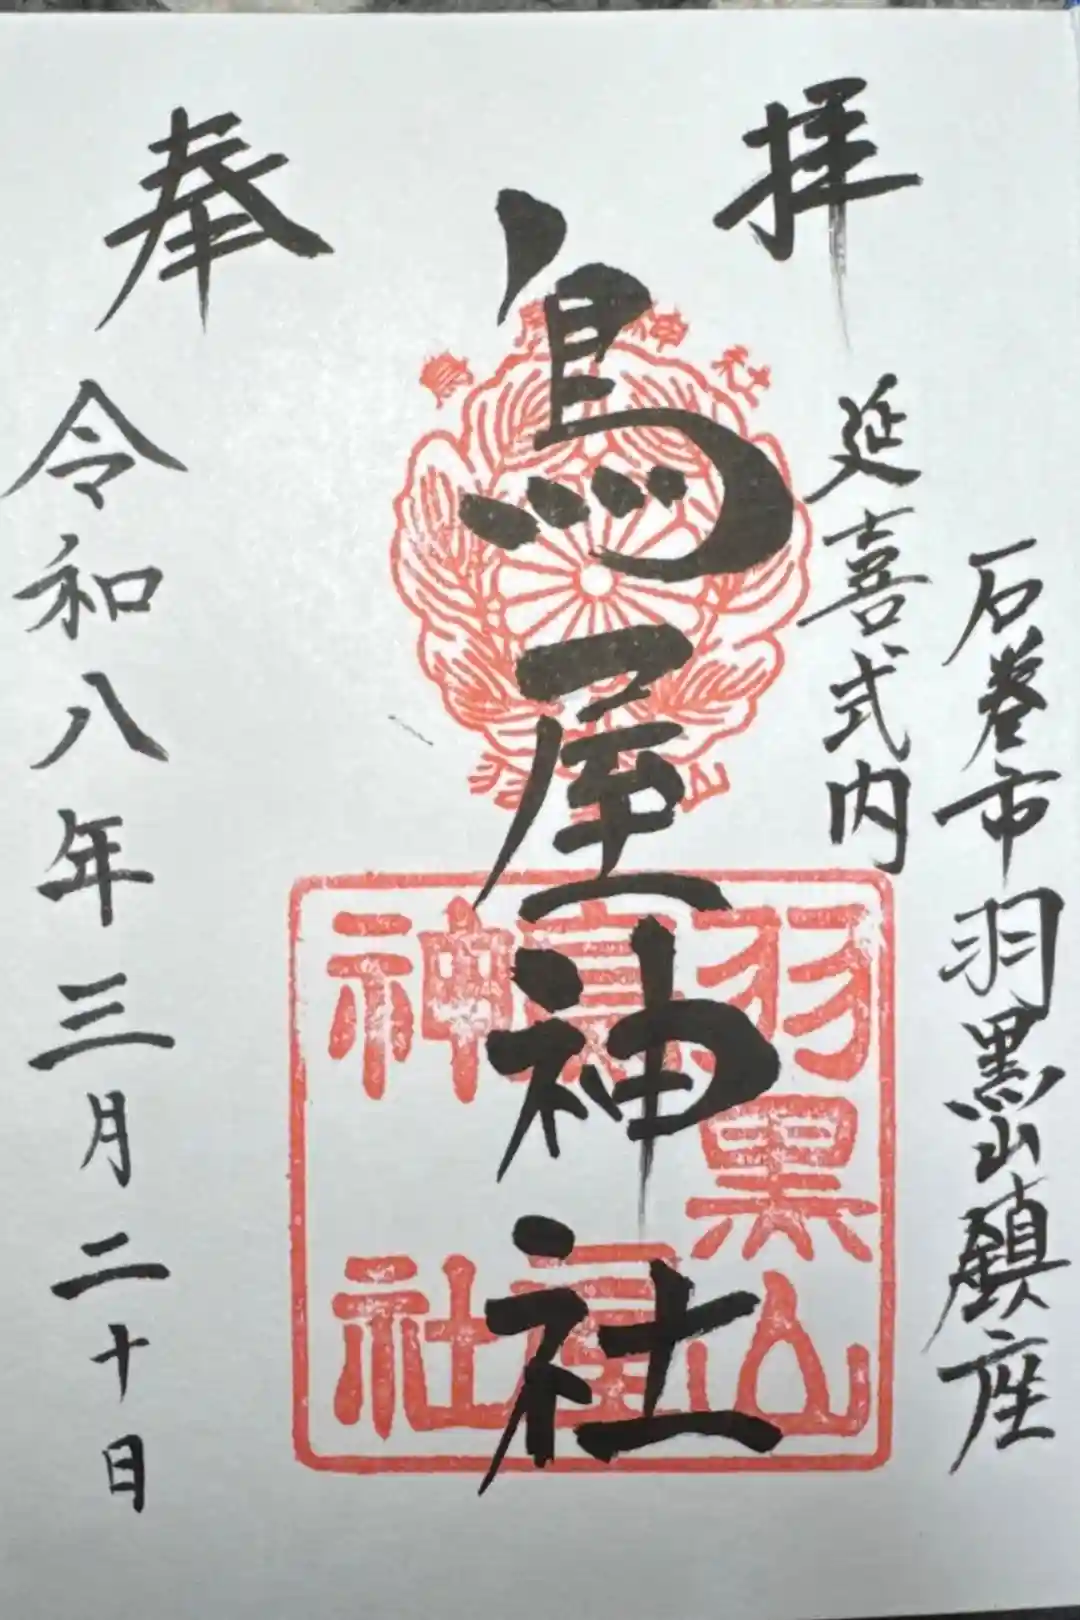 拝
奉
石巻市羽黒山鎮座
延喜式内
鳥屋神社
令和八年三月二十日
鳥屋神社
羽黒山
鳥屋
神社